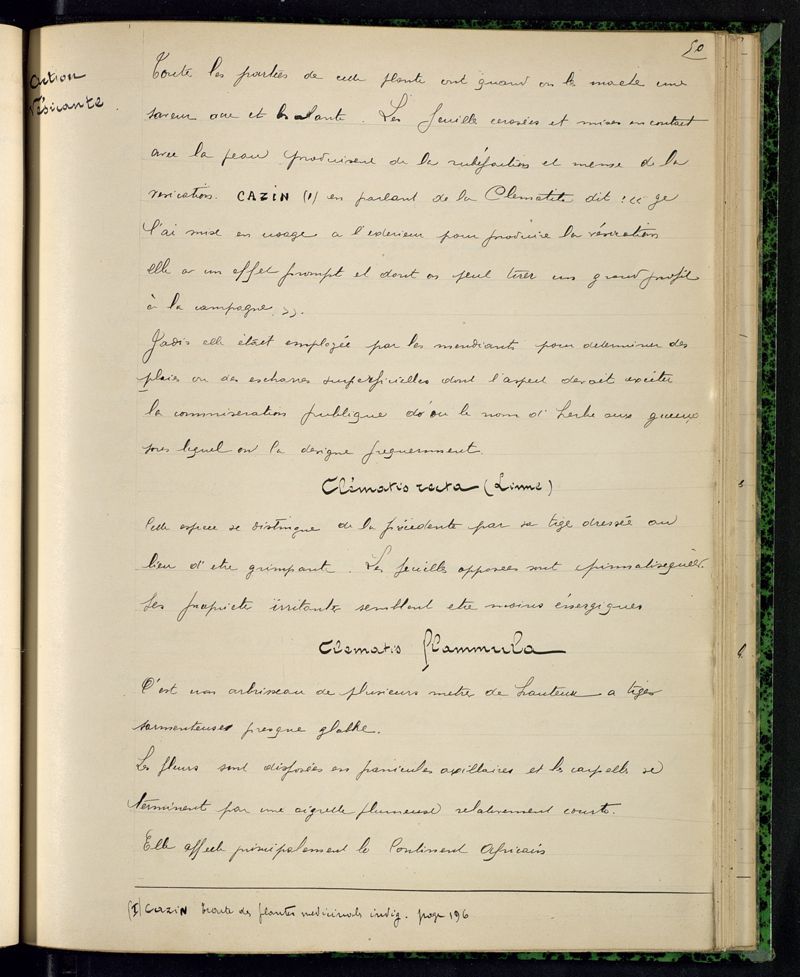 50
Action
Vésicante
Toute les parties de cette plante ont quand on les mache une
saveur acre et brulante. Les feuille ecrasées et mises en contact
avec la peau produisent de la rubéfaction et meme de la
vesication. CAZIN (1) en parlant de la Clematite dit : << ge
l'ai mise en usage a l'exterieur pour produire la vésication
elle a un effet prompt et dont on peut tirer un grand profit
à la campagne >>.
Jadis elle était employée par les mendiants pour determiner des
plaies ou des escharres superficielles dont l'aspect devait exciter
la commiseration publique d'ou le nom d'herbe aux gueux
sous lequel on la designe frequemment.
Clématis recta (Linne)
Cette espece se distingue de la précédente par sa tige dressée au
lieu d'etre grimpante. Les feuilles opposées sont pinnatiséquées.
Ses propriete irritantes semblent etre moins énergiques
Clematis flammula
C'est un arbrisseau de plusieurs metre de hauteur a tiges
sarmenteuses presque glabre.
Les fleurs sont disposées en panicules axillaires et les carpelles se
terminent par une aigrette plumeuse relativement courte.
Elle affecte principalement le Continent Africain
(I) CAZIN Traite des plantes medicinales indig. page 196